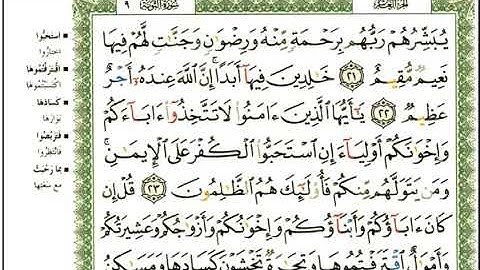 الجزء العاشر
سورة التوبة
٩
يُبَشِّرُهُمْ رَبُّهُم بِرَحْمَةٍ مِّنْهُ وَرِضْوَانٍ وَجَنَّاتٍ لَّهُمْ فِيهَا
نَعِيمٌ مُّقِيمٌ ٢١ خَالِدِينَ فِيهَا أَبَدًا إِنَّ اللَّهَ عِندَهُ أَجْرٌ
عَظِيمٌ ٢٢ يَا أَيُّهَا الَّذِينَ ءَامَنُوا لَا تَتَّخِذُوا ءَابَاءَكُمْ
وَإِخْوَانَكُمْ أَوْلِيَاءَ إِنِ اسْتَحَبُّوا الْكُفْرَ عَلَى الْإِيمَانِ
وَمَن يَتَوَلَّهُم مِّنكُمْ فَأُولَٰئِكَ هُمُ الظَّالِمُونَ ٢٣ قُلْ إِن
كَانَ ءَابَاؤُكُمْ وَأَبْنَاؤُكُمْ وَإِخْوَانُكُمْ وَأَزْوَاجُكُمْ وَعَشِيرَتُكُمْ
وَأَمْوَالٌ اقْتَرَفْتُمُوهَا وَتِجَارَةٌ تَخْشَوْنَ كَسَادَهَا وَمَسَاكِنُ
استحبوا
اختاروا
اقترفتموها
اكتسبتموها
كسادها
بوارها
فتربصوا
فانتظروا
بما رحبت
مع سعتها